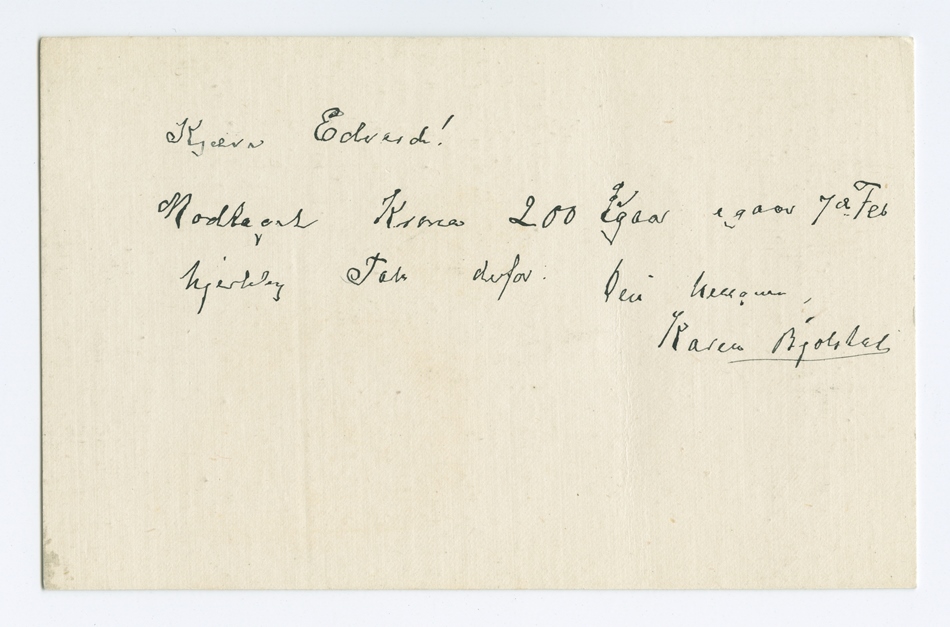 Kjære Edvard!
Modtaget Krone 200 Igaar igaar 7de Feb
hjertelig Tak derfor. Din
Karen Bjølstad